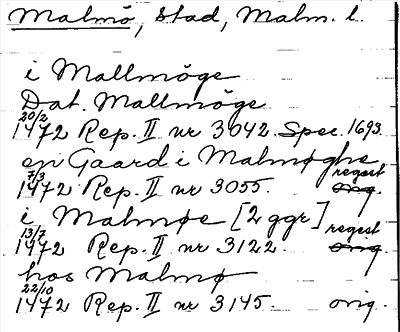 Malmö, Stad, Malm. l.
i Mallmöge
Dat. Mallmöge
20/2
1472 Rep. II nr 3042. Spec. 1693.
en Gaard i Malmøghe
7/3 regest
1472 Rep. II nr 3055. orig.
i Malmøe [2 ggr]
13/7 regest
1472 Rep. II nr 3122. orig.
hos Malmø
22/10
1472 Rep. II nr 3145. orig.